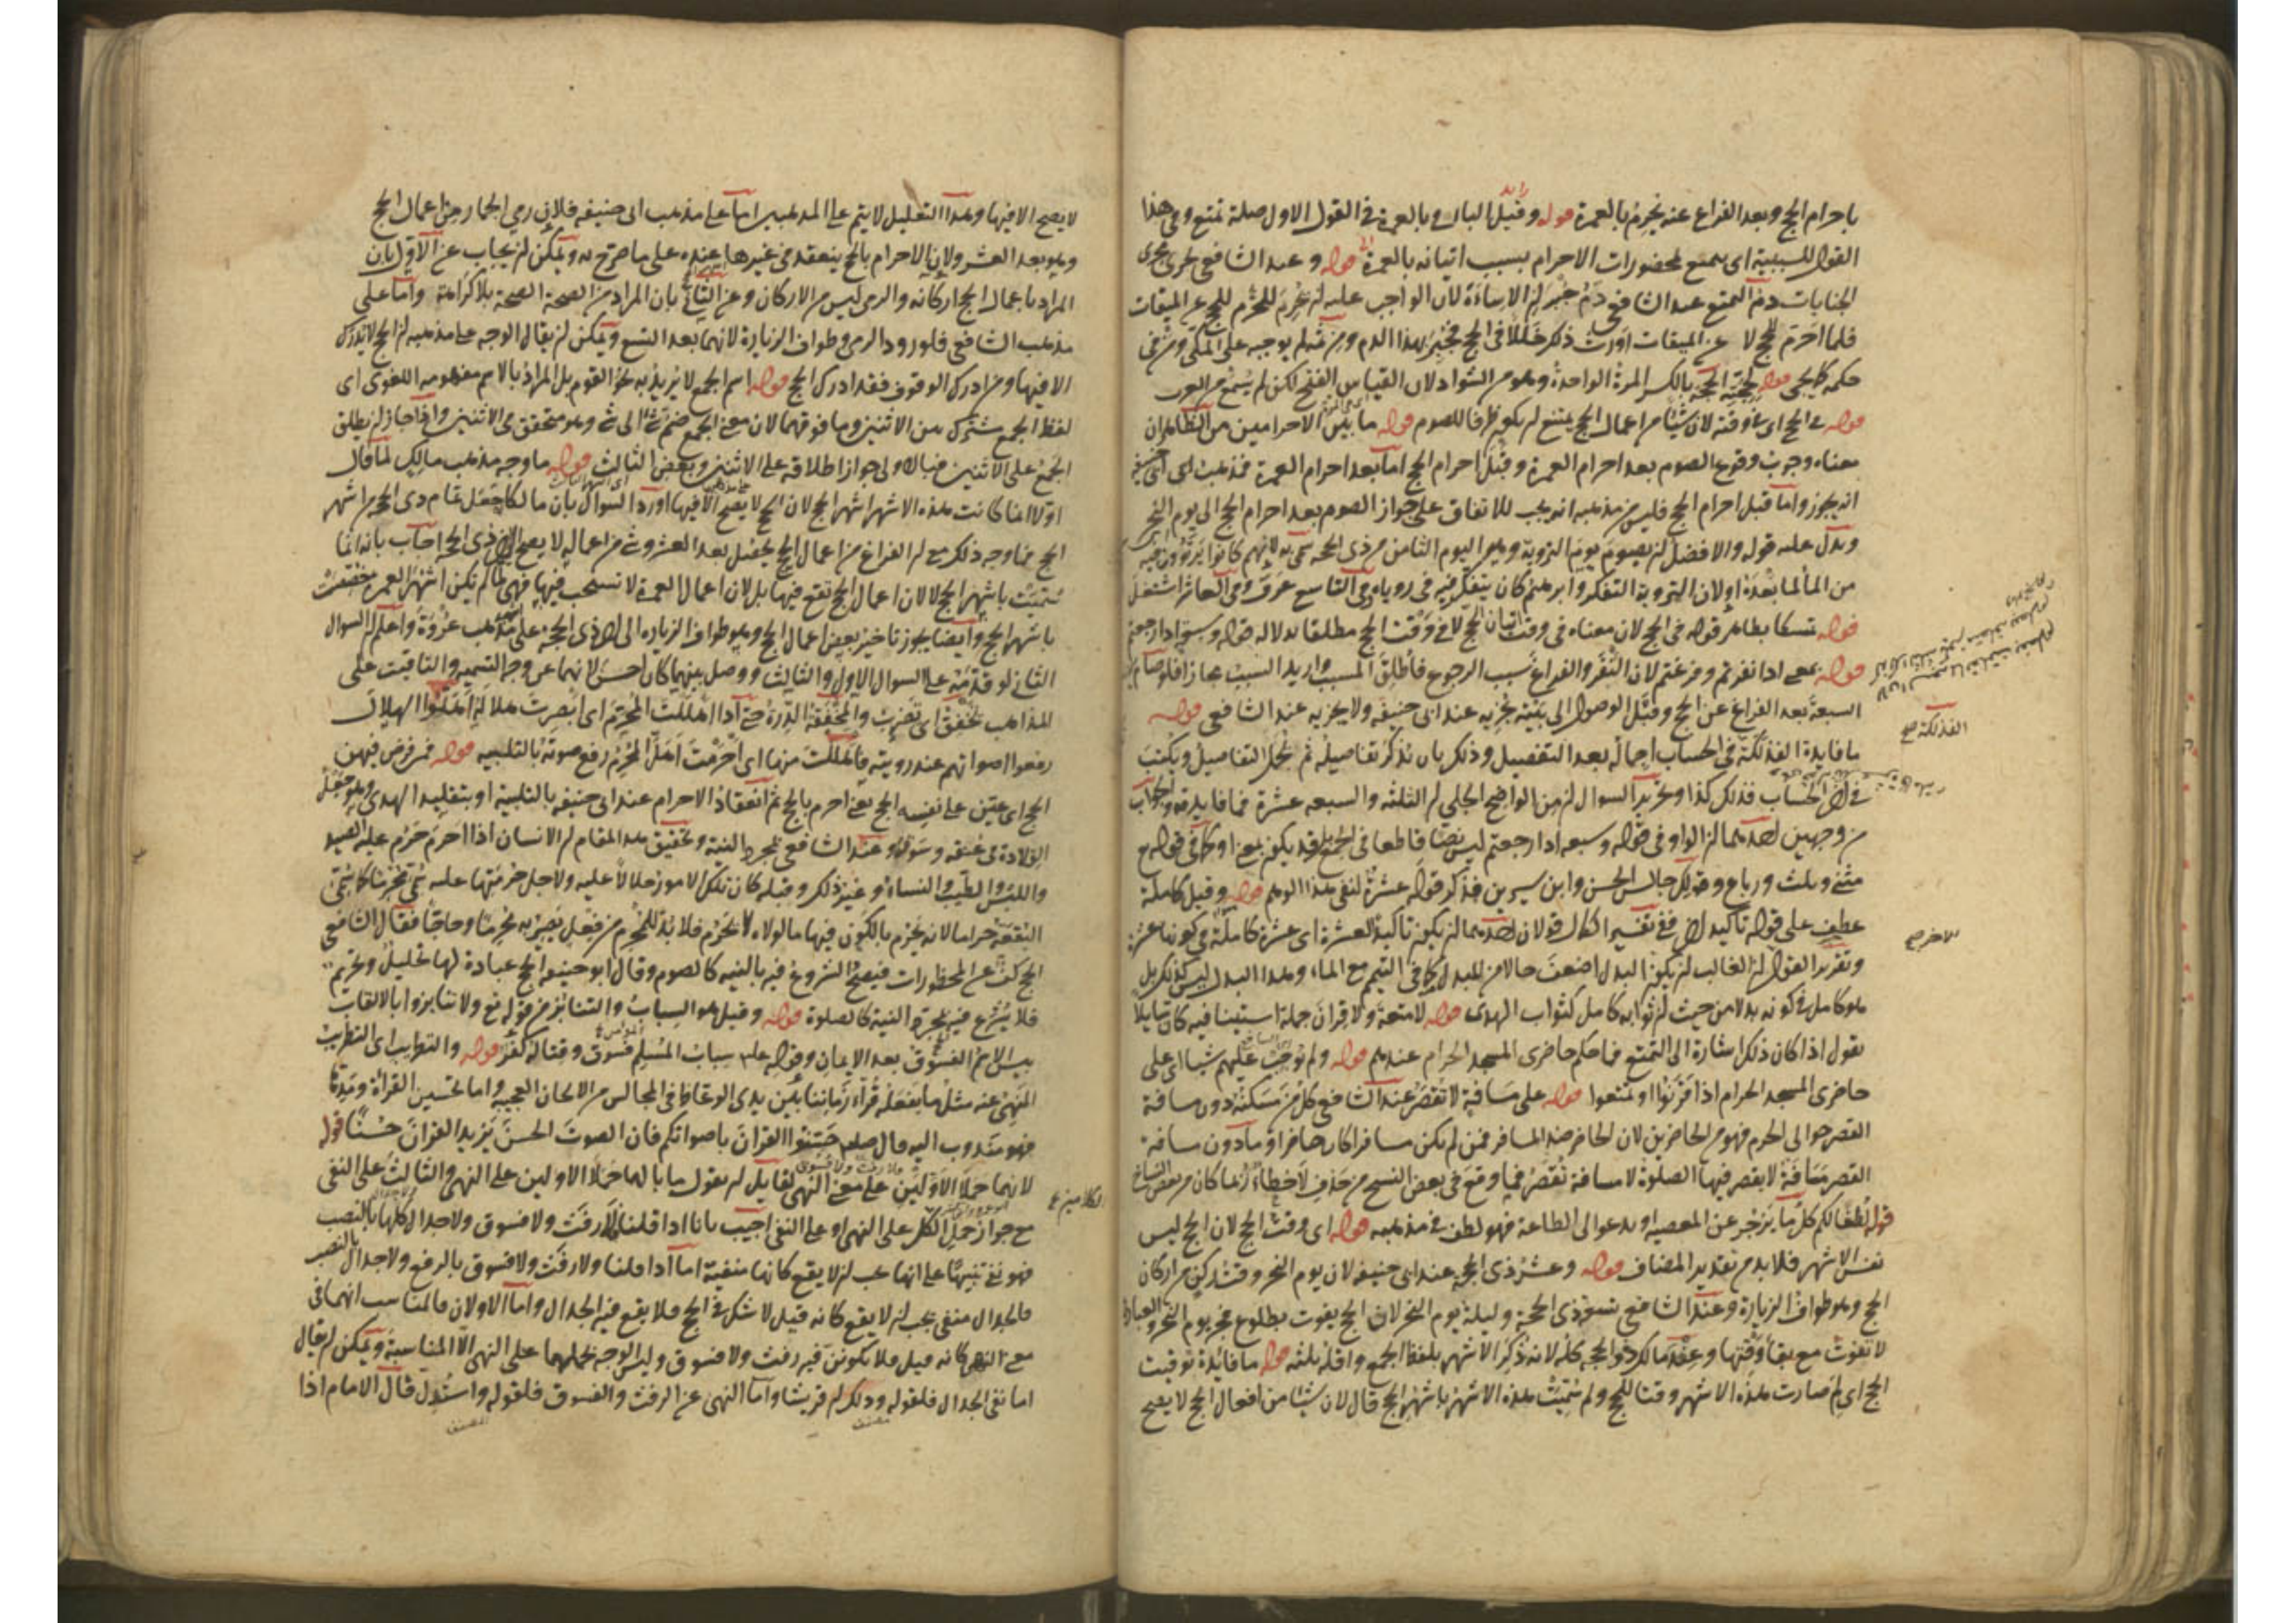 باحرام الحج وبعد الفراغ عنه يحرم بالعمرة قوله وقيل الباء في بالعمرة في القول الاول صلة تمتع وفي هذا
القول للسببية اى تمتع لمحضورات الاحرام بسبب اتيانه بالعمرة قوله وعند الشافعى يجرى مجرى
الجنايات دم التمتع عند الشافعى دم جبر لان الاساءة لان الواجب عليه ان يحرم للحج عن الميقات
فلما احرم للحج لا عن الميقات اورث ذلك خللا فى الحج فجبر بهذا الدم ومن ثم لم يوجبه على المكى ومن فى
حكمه قوله لحجة الحجة بالكسر المرة الواحدة وهو من الشواذ لان القياس الفتح لكن لم يسمع من العرب
قوله فى الحج اى فى وقته لان شيئا من اعمال الحج يمتنع ان يكون ظرفا للصوم قوله ما بين الاحرامين من الظاهر ان
معناه وجوب وقوع الصوم بعد احرام العمرة وقبل احرام الحج اما بعد احرام العمرة فمذهب ابى حنيفة
انه يجوز واما قبل احرام الحج فليس من مذهبه انه يجب للاتفاق على جواز الصوم بعد احرام الحج الى يوم النحر
ويدل عليه قوله والافضل ان يصوم يوم التروية وهو اليوم الثامن من ذى الحجة سمى به لانهم كانوا يرتوون فيه
من الماء لما بعده او لان التروية التفكر وابرهيم كان يتفكر فيه فى رؤياه وفى التاسع عرف وفى العاشر اشتغل
قوله تمسكا بظاهر قوله فى الحج لان معناه فى وقت اتيان الحج لا فى وقت الحج مطلقا بدلالة قوله وسبعة اذا رجعتم
قوله بمعنى اذا نفرتم وفرغتم لان النفر والفراغ سبب الرجوع فاطلق المسبب واريد السبب مجازا فلو صام
السبعة بعد الفراغ عن الحج وقبل الوصول الى بيته يجزيه عند ابى حنيفه ولا يجزيه عند الشافعى قوله
ما فايدة الفذلكة فى الحساب اجمال بعد التفصيل وذلك بان يذكر تفاصيله ثم يجمل التفاصيل ويكتب
فى اخر الحساب فذلك كذا وتحرير السوال ان من الواضح الجلى ان الثلثه والسبعه عشرة فما فايدته والجواب
من وجهين احدهما ان الواو فى قوله وسبعه اذا رجعتم ليس نصا قاطعا فى الجمع بل قد يكون بمعنى او كما فى قوله تع
مثنى وثلث ورباع وقولك جالس الحسن وابن سيرين فذكر قوله عشرة لنفى هذا الوهم قوله وقيل كاملة
عطف على قوله تاكيد اخر ففى تفسير الكمال قولان احدهما ان يكون تاكيد العشرة اى عشرة كاملة فى كونها عشرة
وتقرير القول ان الغالب ان يكون البدل اضعف حالا من المبدل كما فى التيمم مع الماء وهذا البدل ليس كذلك بل
هو كامل فى كونه بدلا من حيث ان ثوابه كامل كثواب الهدى قوله لا متعة ولا قران جملة استينافيه كان قايلا
يقول اذا كان ذلك اشارة الى التمتع فما حكم حاضرى المسجد الحرام عندهم قوله ولم يوجب عليهم شيا اى على
حاضرى المسجد الحرام اذا قرنوا او تمتعوا قوله على مسافة لا تقصر عند الشافعى كل من مسكنه دون مسافة
القصر حوالى الحرم فهو من الحاضرين لان الحاضر ضد المسافر فمن لم يكن مسافرا كان حاضرا وما دون مسافة
القصر مسافة لا يقصر فيها الصلوة لا مسافة تقصر فما وقع فى بعض النسخ من حذف لا خطاء ربما كان من بعض النساخ
قوله لطفا لكم كل ما يزجر عن المعصيه او يدعو الى الطاعة فهو لطف فى مذهبه قوله اى وقت الحج لان الحج ليس
نفس الاشهر فلا بد من تقدير المضاف قوله وعشر ذى الحجة عند ابى حنيفه لان يوم النحر وقت لركن من اركان
الحج وهو طواف الزيارة وعند الشافعى تسع ذى الحجة وليلة يوم النحر لان الحج يفوت بطلوع فجر يوم النحر والعبادة
لا تفوت مع بقاء وقتها وعند مالك ذو الحجة كله لانه ذكر الاشهر بلفظ الجمع واقله ثلثه قوله ما فايدة توقيت
الحج اى لم صارت هذه الاشهر وقتا للحج ولم سميت هذه الاشهر باشهر الحج قال لان شيئا من افعال الحج لا يصح
الفذلكة صح
الاخر صح
لا يصح الا فيها وهذا التعليل لا يتم على المذهبين اما على مذهب ابى حنيفه فلان رمى الجمار من اعمال الحج
وهو بعد العشر ولان الاحرام بالحج ينعقد فى غيرها عنده على ما صرح به ويمكن ان يجاب عن الاول بان
المراد باعمال الحج اركانه والرمى ليس من الاركان وعن الثانى بان المراد من الصحة الصحة بلا كراهة واما على
مذهب الشافعى فلورود الرمى وطواف الزيارة لانهما بعد التسع ويمكن ان يقال الوجه على مذهبه ان الحج لا يدرك
الا فيها ومن ادرك الوقوف فقد ادرك الحج قوله اسم الجمع لا يريد به نحو القوم بل المراد بالاسم مفهومه اللغوى اى
لفظ الجمع مشترك بين الاثنين وما فوقهما لان معنى الجمع ضم شئ الى شئ وهو متحقق فى الاثنين واذا جاز ان يطلق
الجمع على الاثنين فبالاولى جواز اطلاقه على الاثنين وبعض الثالث قوله ما وجه مذهب مالك لما قال
اولا انما كانت هذه الاشهر اشهر الحج لان الحج لا يصح الا فيها اورد السوال بان مالكا جعل تمام ذى الحجة من اشهر
الحج فما وجه ذلك مع ان الفراغ من اعمال الحج يحصل بعد العشر وشئ من اعماله لا يصح الى اخر ذى الحجة اجاب بانه انما
سميت باشهر الحج لا لان اعمال الحج تقع فيها بل لان اعمال العمرة لا تستحب فيها فهى لما لم تكن اشهر العمرة خصصت
باشهر الحج وايضا يجوز تاخير بعض اعمال الحج وهو طواف الزيارة الى اخر ذى الحجة على مذهب عروة واعلم ان السوال
الثانى لو قدمه على السوال الاول والثالث ووصل بينهما كان احسن لانهما عن وجه التسميه والتاقيت على
المذاهب تخفق اى تضرب والمخفقة الدرة حتى اذا اهللت المحرم اى ابصرت هلاله اهلوا الهلال
رفعوا اصواتهم عند رويته فاهللت منها اى احرمت اهل المحرم رفع صوته بالتلبيه قوله فمن فرض فيهن
الحج اى عين على نفسه الحج يعنى احرم بالحج ثم انعقاد الاحرام عند ابى حنيفه بالتلبية او بتقليد الهدى وهو جعل
القلادة فى عنقه وسوقه وعند الشافعى بمجرد النية وتحقيق هذا المقام ان الانسان اذا احرم حرم عليه الصيد
واللبس والطيب والنساء وغير ذلك وقبله كان تلك الامور حلالا عليه ولاجل حرمتها عليه سمى محرما كما سمى
البقعة حراما لانه يحرم بالكون فيها ما لولاه لا يحرم فلا بد للمحرم من فعل يصير به محرما وحاجا فقال الشافعى
الحج كف عن المحظورات فيصح الشروع فيه بالنيه كالصوم وقال ابو حنيفه الحج عبادة لها تحليل وتحريم
فلا يشرع فيه بمجرد النية كالصلوة قوله وقيل هو السباب والتنابز من قوله تع ولا تنابزوا بالالقاب
بيس الاسم الفسوق بعد الايمان وقوله عليه سباب المسلم فسوق وقتاله كفر قوله والتطريب اى التطريب
المنهى عنه مثل ما يفعله قراء زماننا بين يدى الوعاظ فى المجالس من الالحان العجيبة واما تحسين القراة ومدها
فهو مندوب اليه قال صلعم حسنوا القران باصواتكم فان الصوت الحسن يزيد القران حسنا قوله
لانهما حملا الاولين على معنى النهى لقايل ان يقول ما بالهما حملا الاولين على النهى والثالث على النفى
مع جواز حمل الكل على النهى او على النفى اجيب بانا اذا قلنا لا رفث ولا فسوق ولا جدال كلها بالنصب
فهو نفى تنبيها على انها يجب ان لا يقع كانها منفية اما اذا قلنا ولا رفث ولا فسوق بالرفع ولا جدال بالنصب
فالجدال منفى يجب ان لا يقع كانه قيل لا شك فى الحج فلا يقع فيه الجدال واما الاولان فالمناسب انهما فى
معنى النهى كانه قيل فلا يكونن فيه رفث ولا فسوق وليس الوجه لحملهما على النهى الا المناسبة ويمكن ان يقال
اما نفى الجدال فلقوله وذلك ان قريشا واما النهى عن الرفث والفسوق فلقوله واستدل قال الامام اذا